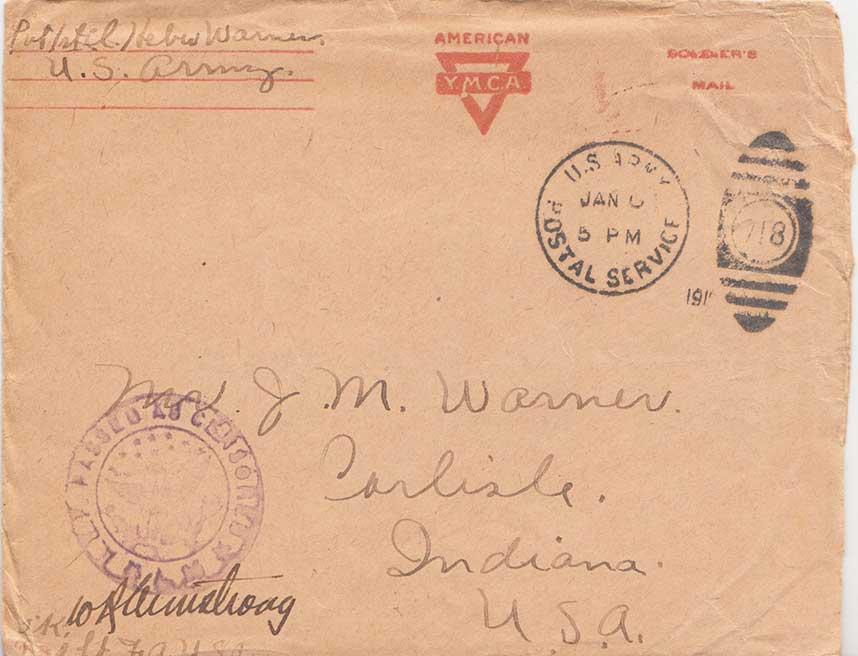 Pvt 1st cl. Heber Warner.
U.S. Army.
AMERICAN
Y.M.C.A.
SOLDIER'S
MAIL
U.S ARMY
JAN
5 PM
POSTAL SERVICE
718
191
Mr. J. M. Warner.
Carlisle.
Indiana.
U.S.A.
PASSED AS CENSORED
O.K. W A Armstrong